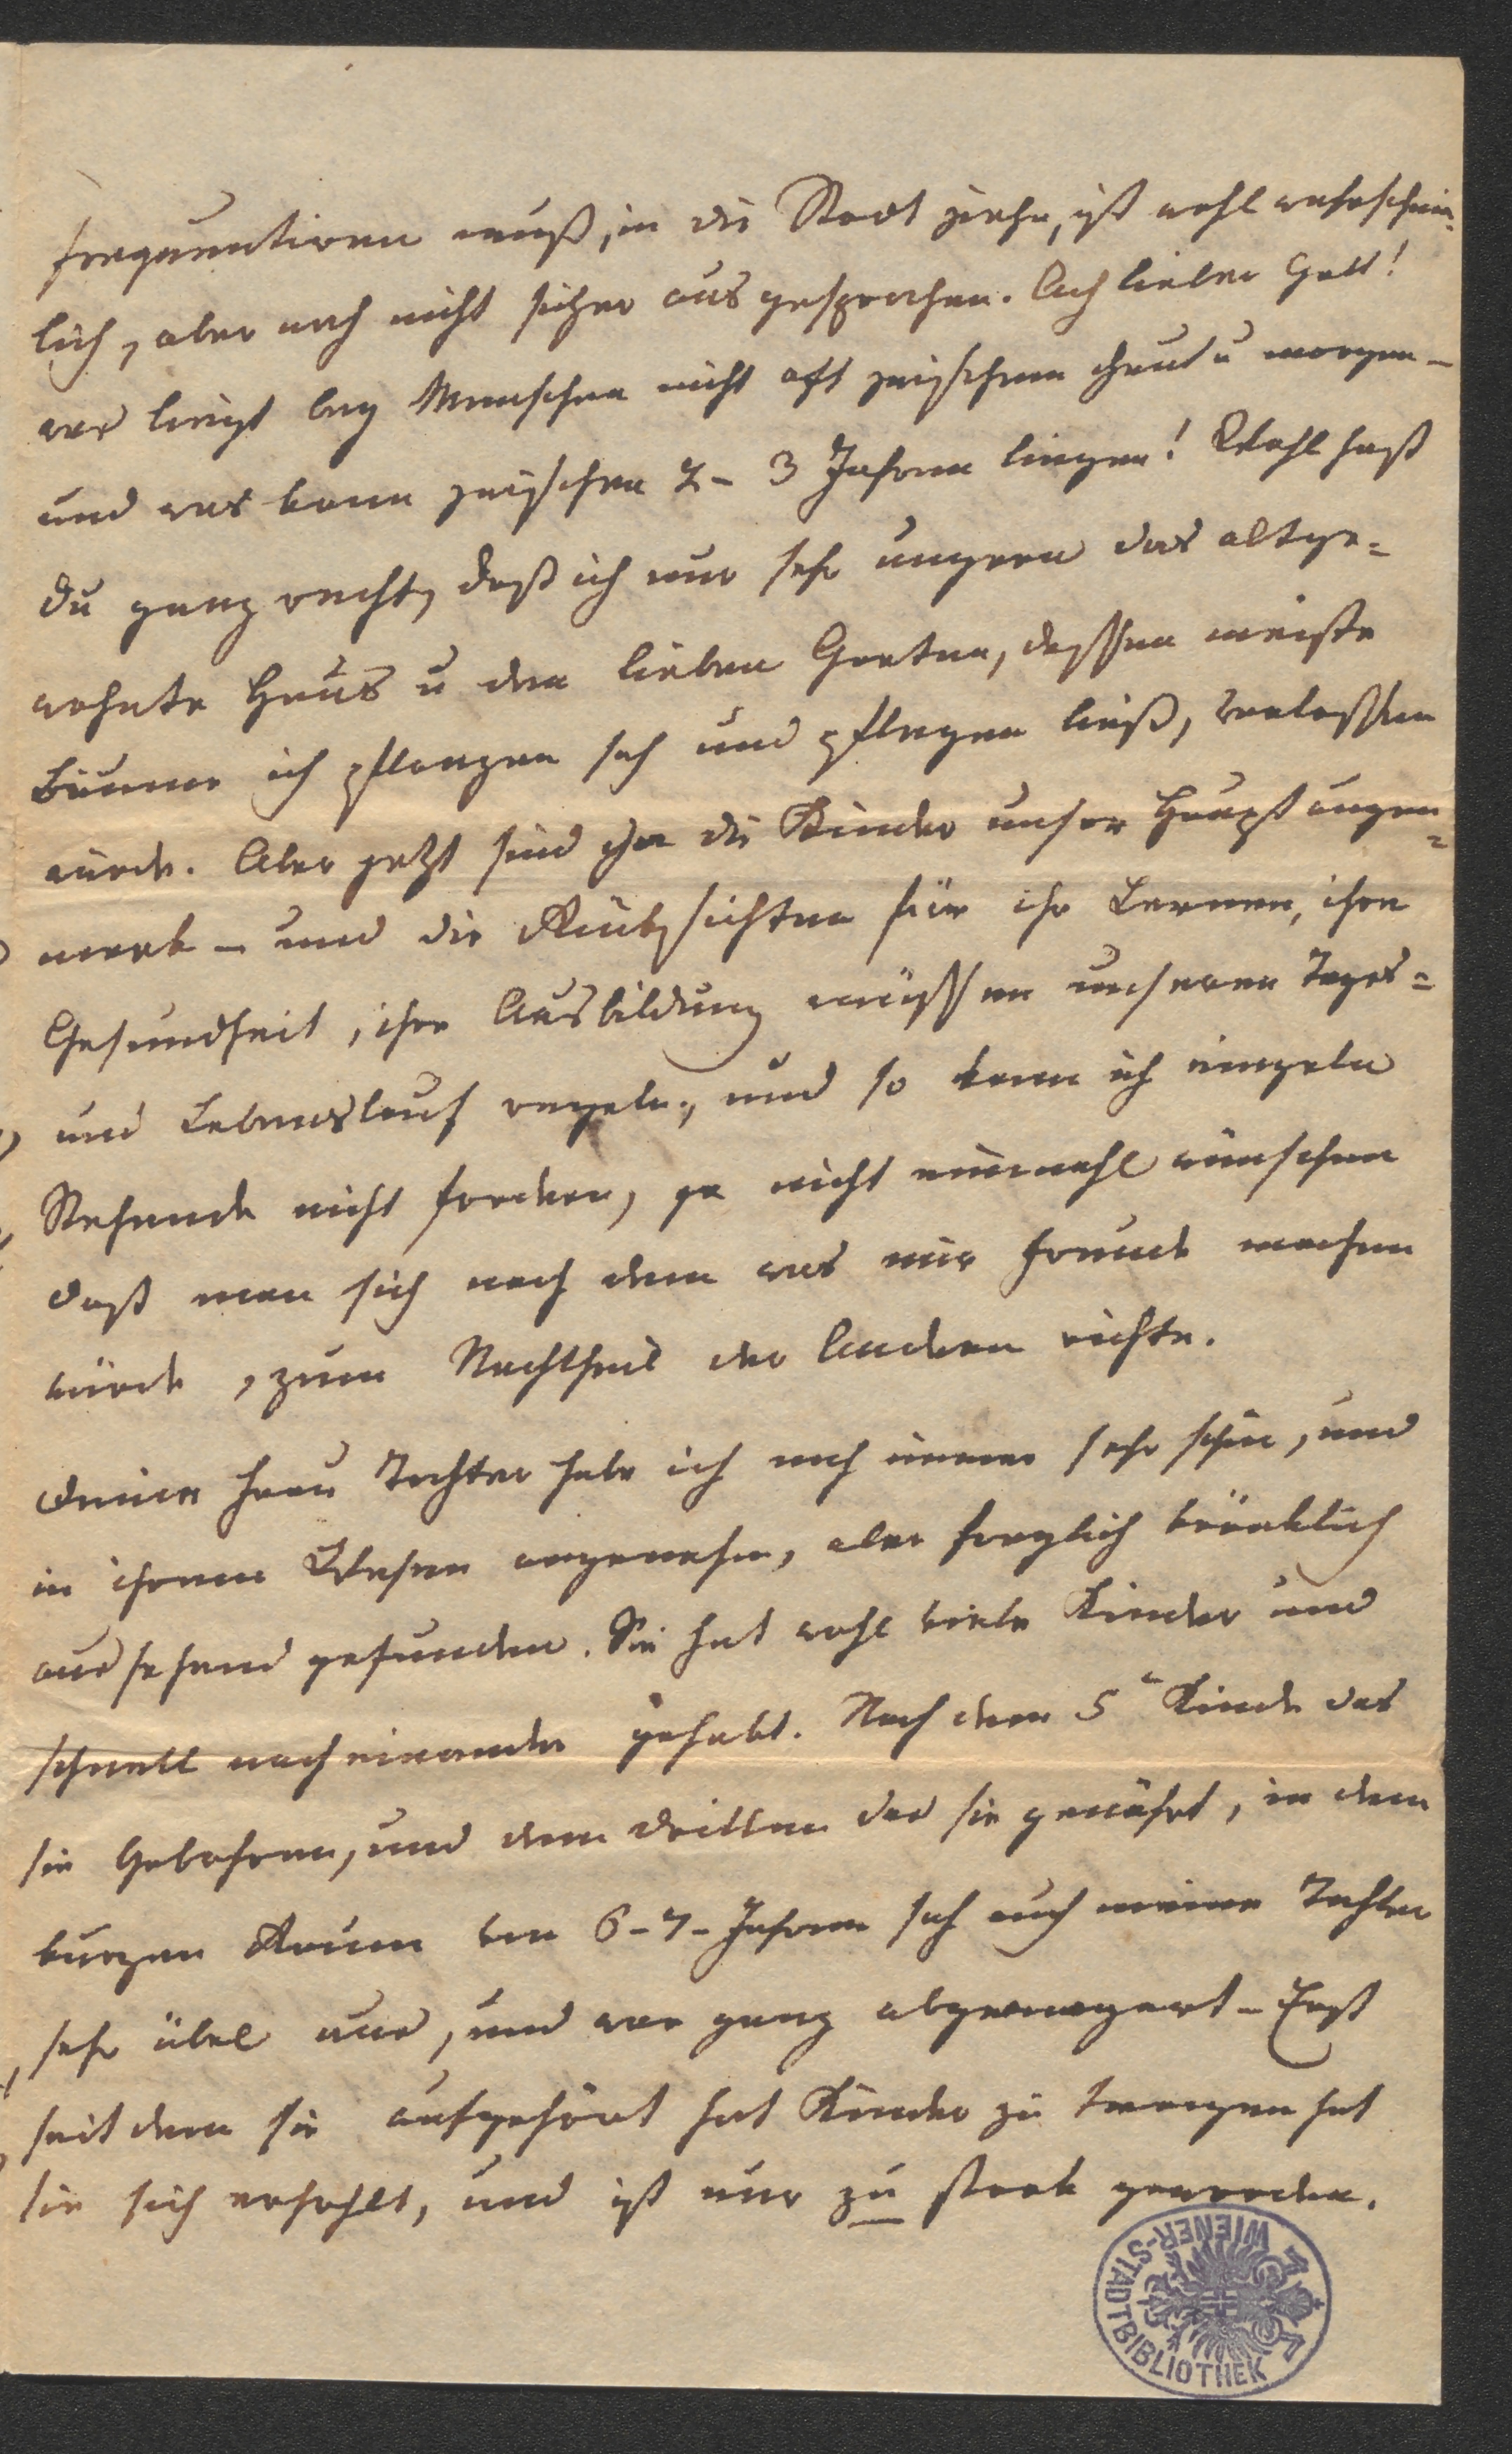 frequentiren muß, in die Stadt ziehn, ist wohl wahrschein-
lich, aber noch nicht sicher ausgesprochen. Ach lieber Gott!
was liegt bey Menschen nicht oft zwischen heut u morgen –
und was kann zwischen 2 – 3 Jahren liegen! Wohl hast
Du ganz recht, daß ich nur sehr ungern das altge=
wohnte Haus u den lieben Garten, dessen meiste
Bäume ich pflanzen sah und pflegen ließ, verlassen
würde. Aber jetzt sind ja die Kinder unser Hauptaugen=
merk – und die Rücksichten für ihr Lernen, ihre
Gesundheit, ihre Ausbildung müssen unseren Tages=
und Lebenslauf regeln, und so kann ich einzeln
Stehende nicht fordern, ja nicht einmahl wünschen
daß man sich nach dem was mir Freude machen
würde, zum Nachtheil der Andern richte.
Deine Frau Tochter habe ich noch immer sehr schön, und
in ihrem Wesen angenehm, aber freylich kränklich
aussehend gefunden. Sie hat wohl viele Kinder und
schnell nach einander gehabt. Nach dem 5n Kinde das
sie Gebohren, und dem dritten das sie genährt, in dem
kurzen Raum von 6–7– Jahren sah auch meine Tochter
sehr übel aus, und war ganz abgemagert – Erst
seit dem sie aufgehört hat Kinder zu tragen hat
sie sich erhohlt, und ist nur zu stark geworden.
WIENER-STADTBIBLIOTHEK